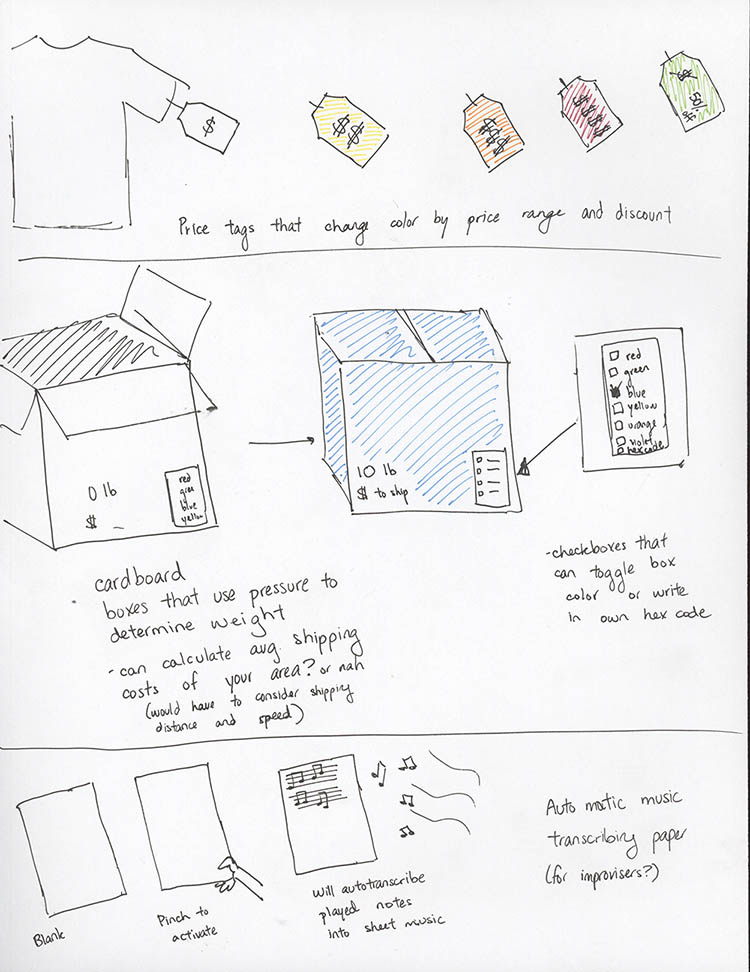 $
$$
$$$
$$$$
$
50%
Price tags that change color by price range and discount
0 lb
$ _
red
gree
blue
yellow
10 lb
$ to ship
red
green
blue
yellow
orange
violet
hex code
cardboard
boxes that use pressure to
determine weight
- can calculate avg. shipping
costs of your area? or nah
(would have to consider shipping
distance and speed)
-checkboxes that
can toggle box
color or write
in own hex code
Blank
Pinch to
activate
will autotranscribe
played notes
into sheet music
Automatic music
transcribing paper
(for improvisers?)